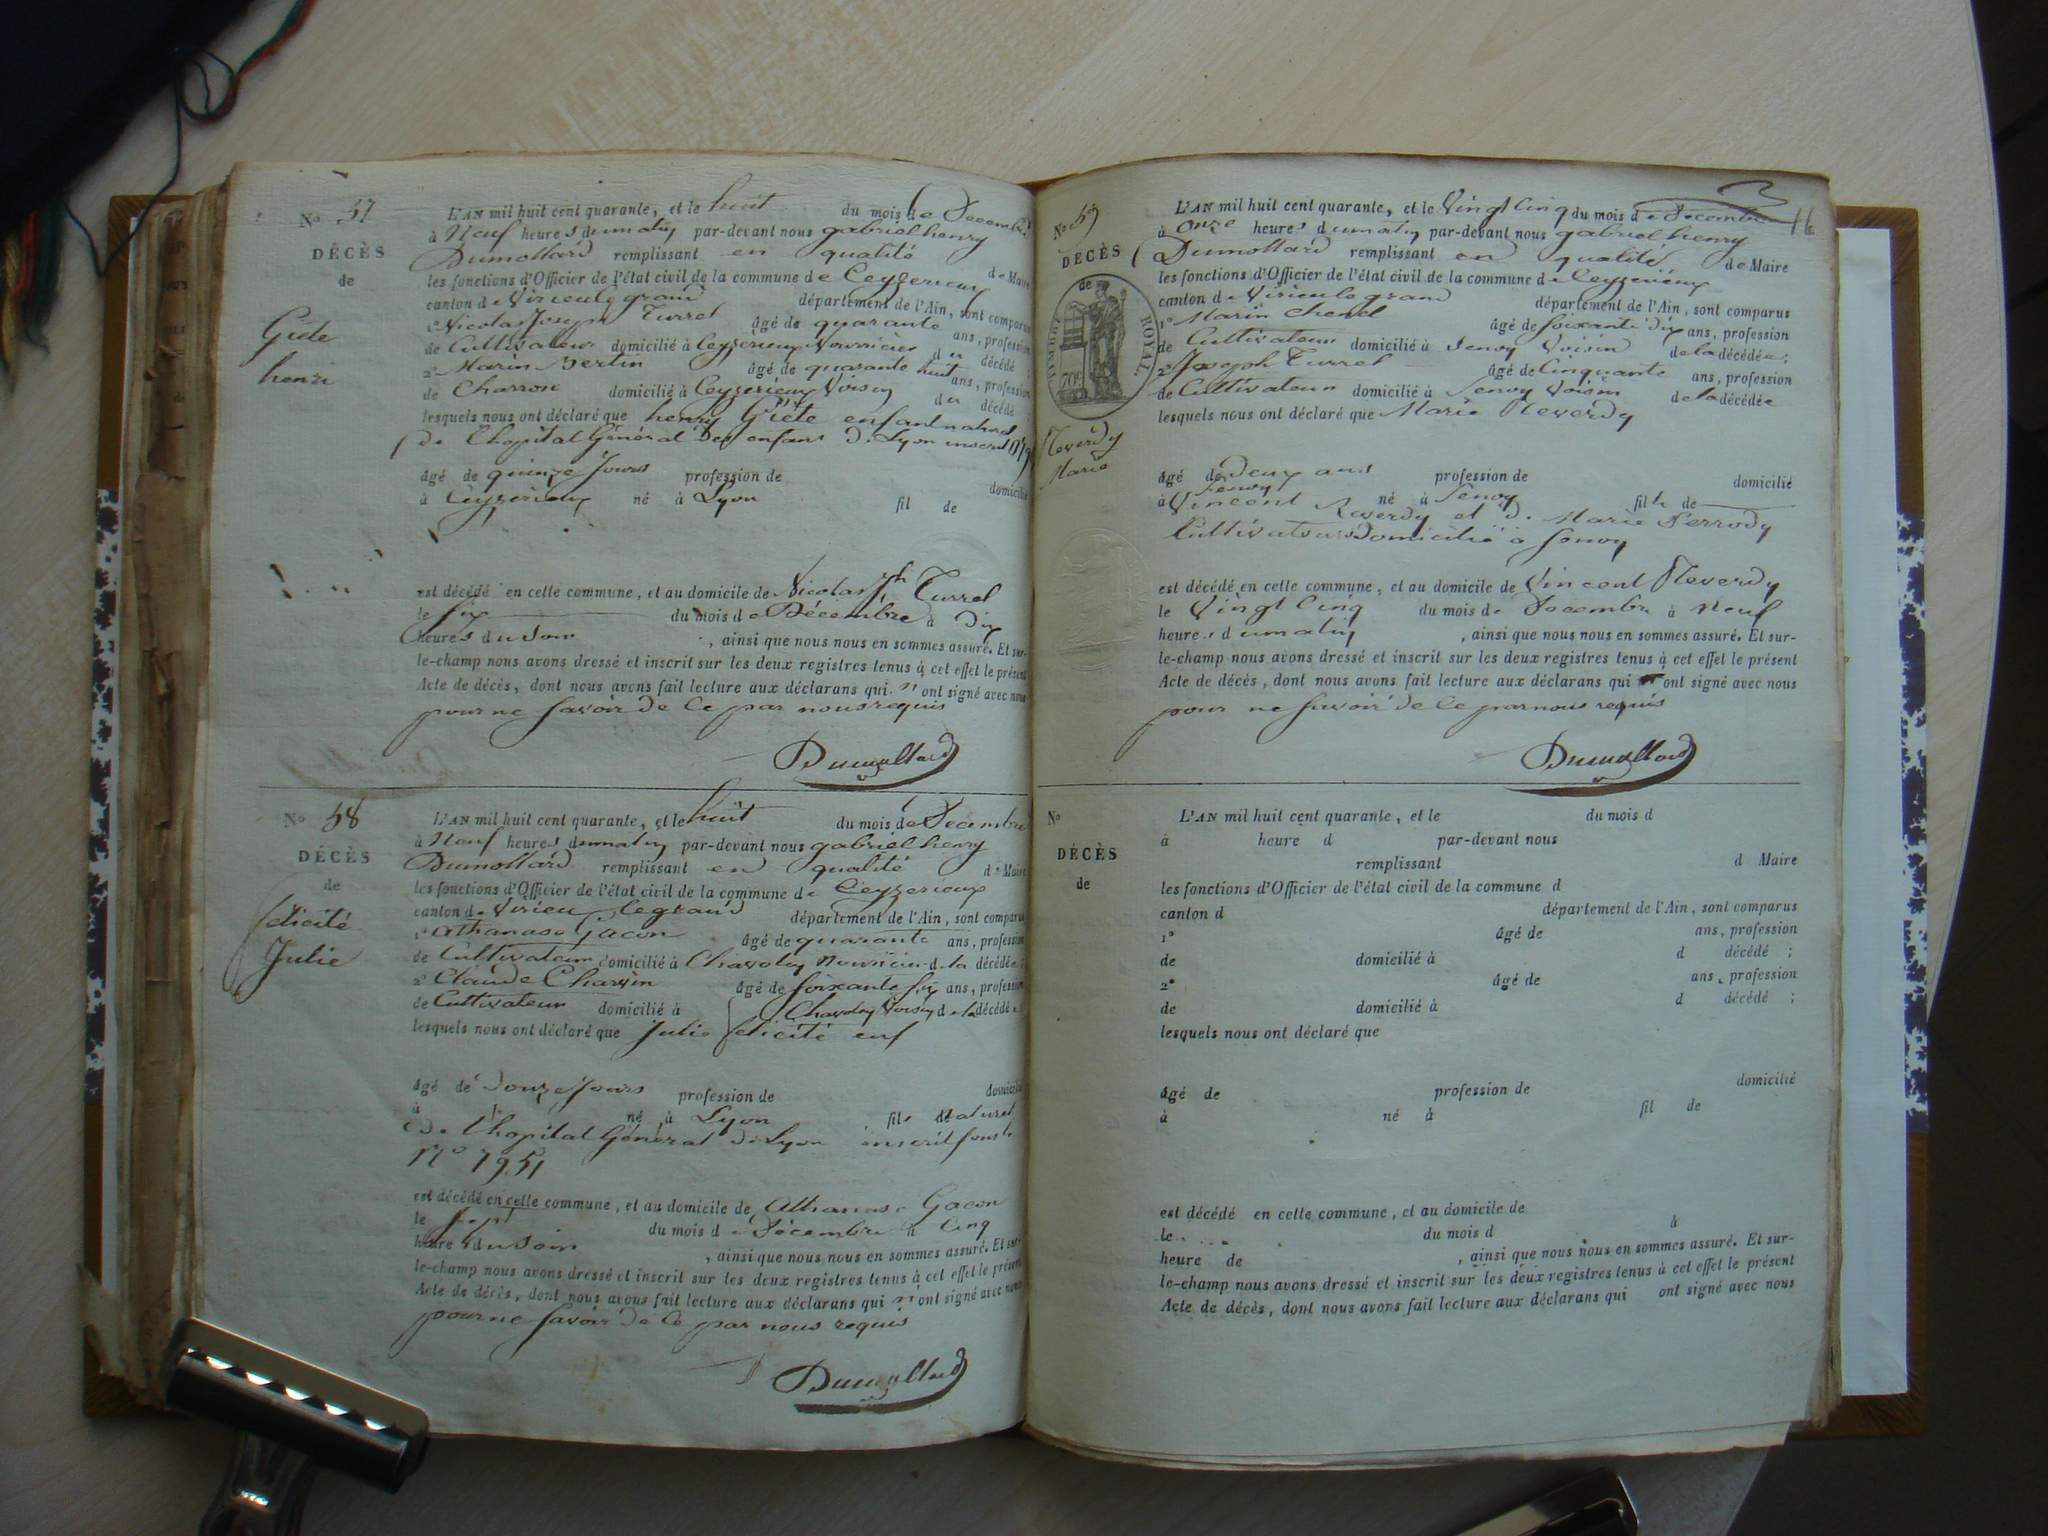 No 57
DÉCÈS
de
Giéte
henri
L'AN mil huit cent quarante, et le huit du mois de Decembre
à Neuf heures du matin par-devant nous gabriel henry
Dumollard remplissant en qualité de Maire
les fonctions d'Officier de l'état civil de la commune de Ceyzerieux
canton de Virieu le grand département de l'Ain, sont comparus
1o Nicolas Joseph Turrel âgé de quarante ans, profession
de Cultivateur domicilié à Ceyzerieux Nourricier du décédé
2o Marin Bertin âgé de quarante huit ans, profession
de Charron domicilié à Ceyzerieux Voisin du décédé
lesquels nous ont déclaré que henry Giéte enfant
de l'hopital Général des enfans de Lyon inscrit
âgé de quinze Jours profession de domicilié
à Ceyzerieux né à Lyon fil de
est décédé en cette commune, et au domicile de Nicolas Jph Turrel
le six du mois de Décembre à dix
heures du Soir, ainsi que nous nous en sommes assuré. Et sur-
le-champ nous avons dressé et inscrit sur les deux registres tenus à cet effet le présent
Acte de décès, dont nous avons fait lecture aux déclarans qui n'ont signé avec nous
pour ne savoir de ce par nous requis
Dumollard
No 58
DÉCÈS
de
felicité
Julie
L'AN mil huit cent quarante, et le huit du mois de Decembre
à Neuf heures du matin par-devant nous gabriel henry
Dumollard remplissant en qualité de Maire
les fonctions d'Officier de l'état civil de la commune de Ceyzerieux
canton de Virieu le grand département de l'Ain, sont comparus
1o Athanase Gacon âgé de quarante ans, profession
de Cultivateur domicilié à Chavoley Nourricier de la décédée
2o Claude Charvin âgé de soixante six ans, profession
de Cultivateur domicilié à Chavoley Voisin de la décédée
lesquels nous ont déclaré que Julie felicité enf
âgé de douze Jours profession de domicilié
à né à Lyon file Naturel
de l'hopital Général de Lyon inscrit sous le
No 7951
est décédé en cette commune, et au domicile de Athanase Gacon
le sept du mois de Décembre à Cinq
heures du soir, ainsi que nous nous en sommes assuré. Et sur-
le-champ nous avons dressé et inscrit sur les deux registres tenus à cet effet le présent
Acte de décès, dont nous avons fait lecture aux déclarans qui n'ont signé avec nous
pour ne savoir de ce par nous requis
Dumollard
16
No 59
DÉCÈS
de
TIMBRE ROYAL
70c
Reverdy
Marie
L'AN mil huit cent quarante, et le Vingt Cinq du mois de Decembre
à onze heures du matin par-devant nous gabriel henry
Dumollard remplissant en qualité de Maire
les fonctions d'Officier de l'état civil de la commune de Ceyzerieux
canton de Virieu le grand département de l'Ain, sont comparus
1o Marin Chenel âgé de soixante dix ans, profession
de Cultivateur domicilié à Senoy Voisin de la décédée;
2o Joseph Turrel âgé de Cinquante ans, profession
de Cultivateur domicilié à Senoy Voisin de la décédée
lesquels nous ont déclaré que Marie Reverdy
âgé de deux ans profession de domicilié
à Senoy né à Senoy file de
Vincent Reverdy et de Marie Perrody
Cultivateurs domicilié à Senoy
est décédé en cette commune, et au domicile de Vincent Reverdy
le Vingt Cinq du mois de Decembre à Neuf
heures du matin, ainsi que nous nous en sommes assuré. Et sur-
le-champ nous avons dressé et inscrit sur les deux registres tenus à cet effet le présent
Acte de décès, dont nous avons fait lecture aux déclarans qui ont signé avec nous
pour ne savoir de ce par nous requis
Dumollard
No
DÉCÈS
de
L'AN mil huit cent quarante, et le du mois d
à heure d par-devant nous
remplissant d Maire
les fonctions d'Officier de l'état civil de la commune d
canton d département de l'Ain, sont comparus
1o âgé de ans, profession
de domicilié à d décédé;
2o âgé de ans, profession
de domicilié à d décédé;
lesquels nous ont déclaré que
âgé de profession de domicilié
à né à fil de
est décédé en cette commune, et au domicile de
le du mois d à
heure de, ainsi que nous nous en sommes assuré. Et sur-
le-champ nous avons dressé et inscrit sur les deux registres tenus à cet effet le présent
Acte de décès, dont nous avons fait lecture aux déclarans qui ont signé avec nous